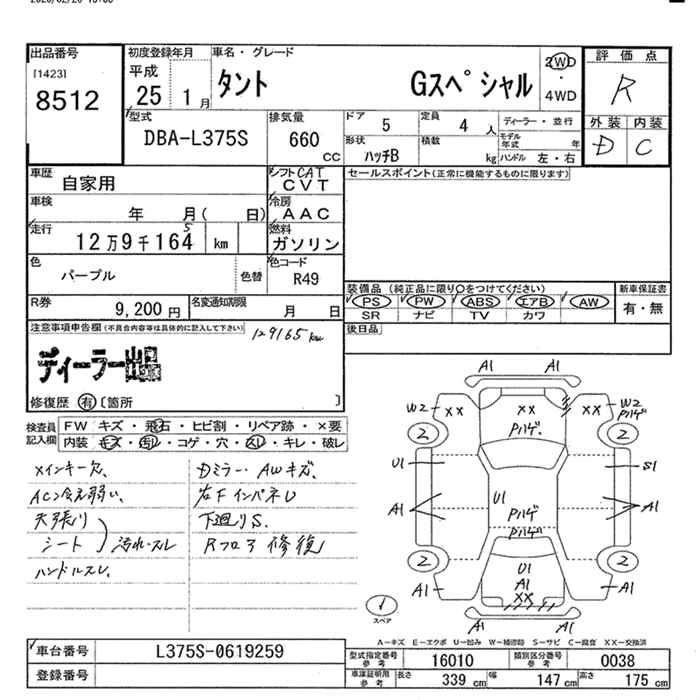 出品番号
[1423]
8512
初度登録年月
平成
25 1月
車名・グレード
タント Gスペシャル
2WD
・
4WD
評価点
R
外装 内装
D C
型式
DBA-L375S
排気量
660
CC
ドア 5
定員 4 人
ディーラー・並行
モデル年式 年
形状 ハッチB
積載 kg
ハンドル 左・右
車歴
自家用
シフト CAT
CVT
セールスポイント(正常に機能するものに限ります)
車検
年 月( 日)
冷房
AAC
走行
12万9千164 km
5
燃料
ガソリン
色
パープル
色替
色コード
R49
装備品(純正品に限り○をつけてください)
PS PW ABS エアB AW
SR ナビ TV カワ
新車保証書
有・無
R券
9,200円
名変通知期限
月 日
後日品
注意事項申告欄(不具合内容等は具体的に記入して下さい)
129165km
ディーラー出品
修復歴 有 〔箇所 〕
検査員記入欄
FW キズ・飛石・ヒビ割・リペア跡・×要
内装 キズ・汚れ・コゲ・穴・スレ・キレ・破レ
×インキー欠、
AC冷え弱い、
天張り
シート 汚れ・スレ
ハンドルスレ、
Dミラー・AWキズ、
右FインパネU
下廻りS、
Rフロア修復
A1 A1
W2 ×× ×× ×× W2
Pハゲ Pハゲ
2 2
U1 S1
U1
A1 A1
Pハゲ
Pハゲ
2 2
U1
A1
A1 ×× A1
A1 A1
1
スペア
A－キズ E－エクボ U－凹み W－補修跡 S－サビ C－腐食 ××－交換済
車台番号
L375S-0619259
登録番号
型式指定番号
参考
16010
類別区分番号
参考
0038
車庫証明用
参考
長さ 339 cm
幅 147 cm
高さ 175 cm